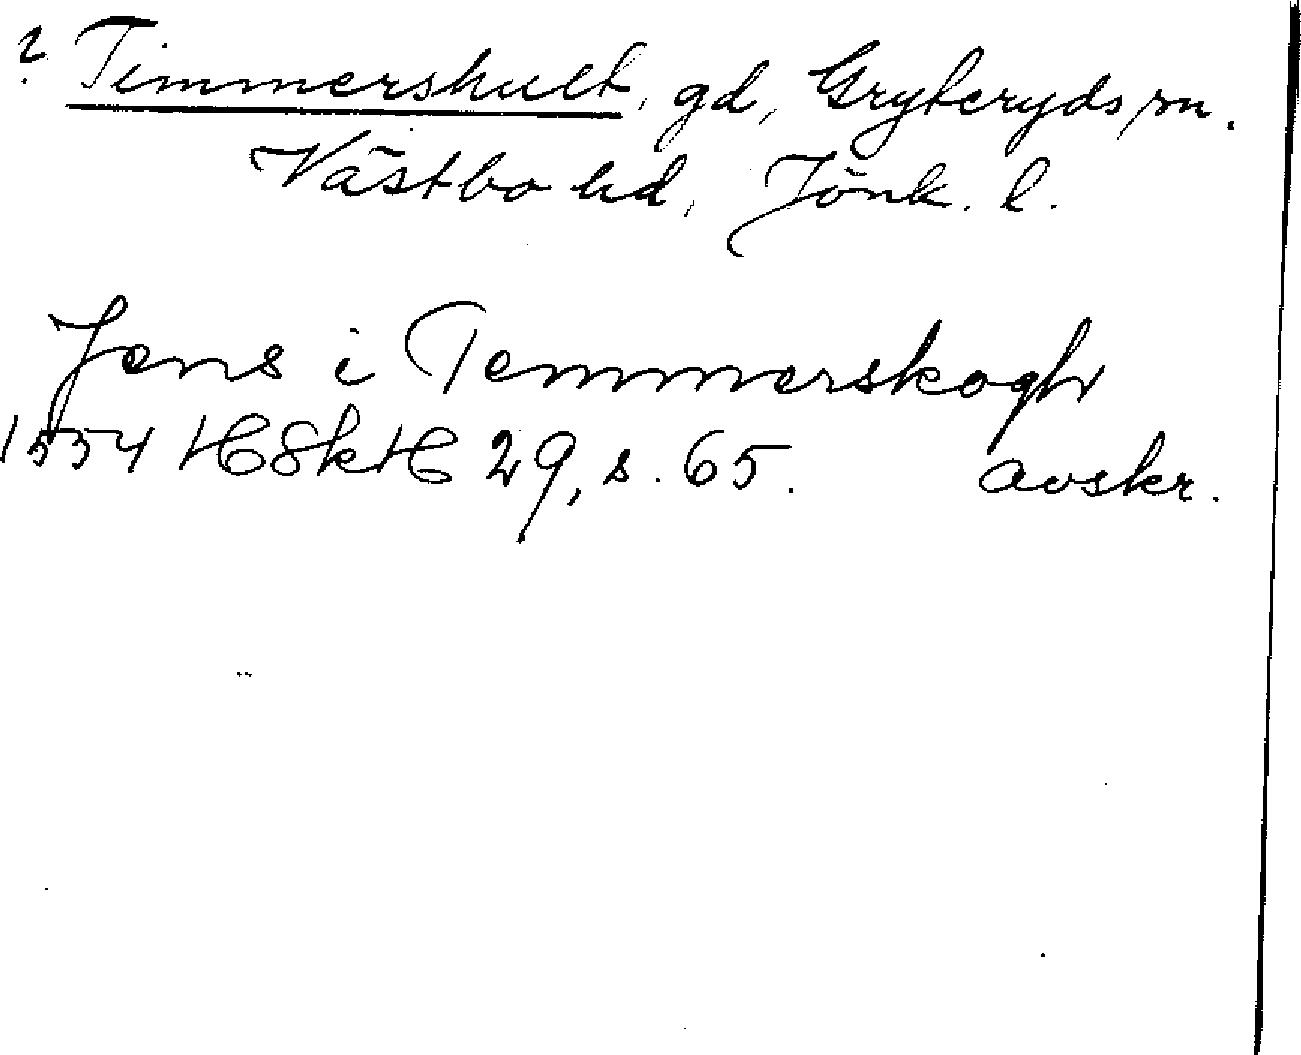 ? Timmershult, gd, Gryteryds sn.
Västbo hd, Jönk. l.
Jens i Temmerskogh
1554 HSkH 29, s. 65. avskr.